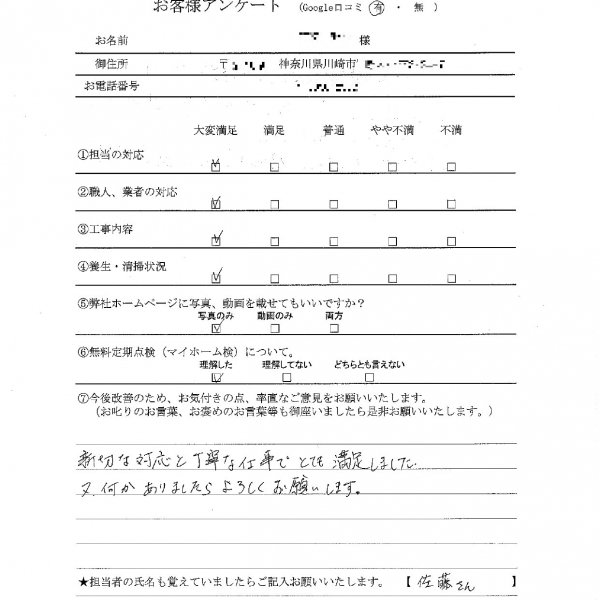 お客様アンケート (Google口コミ 有 ・ 無 )
お名前 様
御住所 〒 神奈川県川崎市
お電話番号
大変満足 満足 普通 やや不満 不満
①担当の対応
②職人、業者の対応
③工事内容
④養生・清掃状況
⑤弊社ホームページに写真、動画を載せてもいいですか?
写真のみ 動画のみ 両方
⑥無料定期点検(マイホーム検)について。
理解した 理解してない どちらとも言えない
⑦今後改善のため、お気付きの点、率直なご意見をお願いいたします。
(お叱りのお言葉、お褒めのお言葉等も御座いましたら是非お願いいたします。)
親切な対応と丁寧な仕事でとても満足しました。
又何かありましたらよろしくお願いします。
★担当者の氏名も覚えていましたらご記入お願いいたします。 【 佐藤さん 】